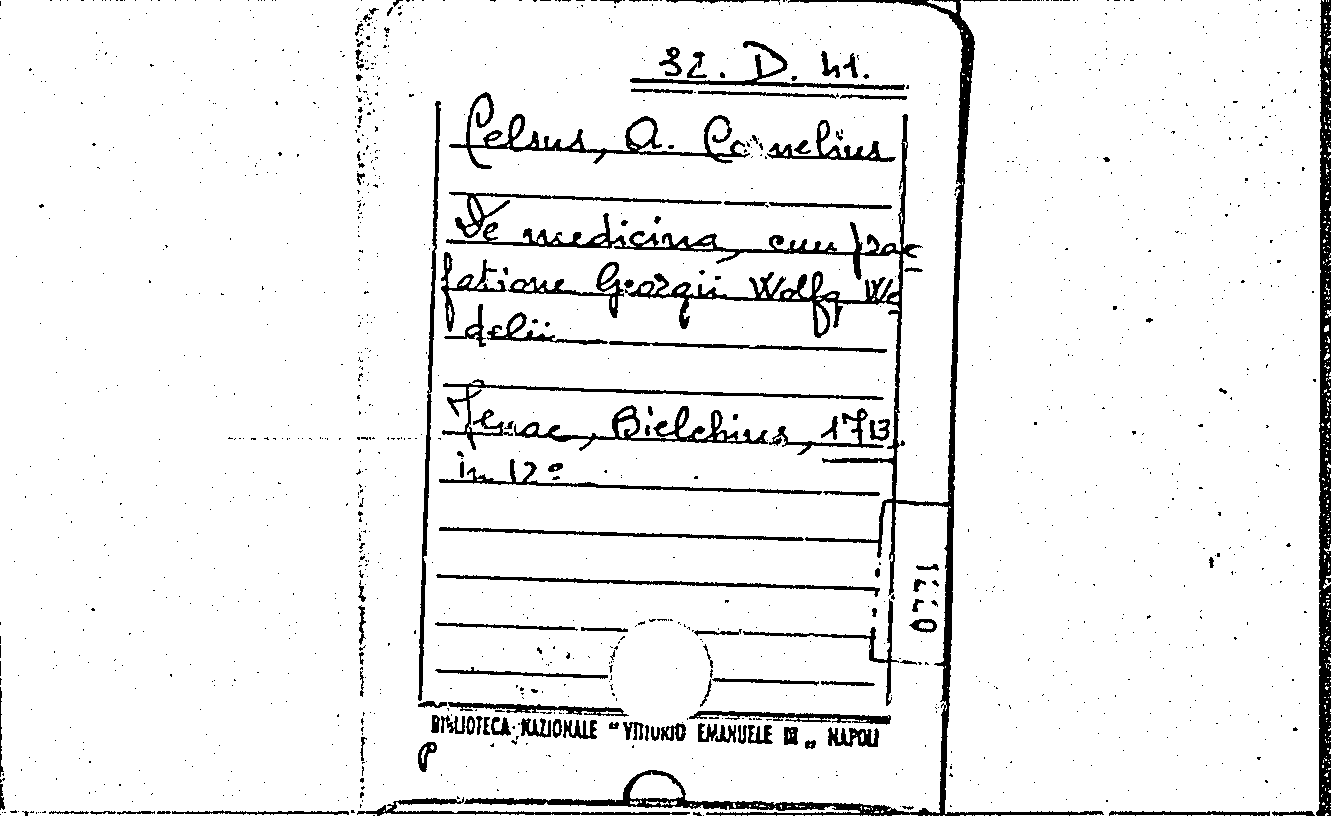 32. D. 41.
Celsus, A. Cornelius
De medicina, cum prae
fatione Georgii Wolfg We
delii
Jenae, Bielchius, 1713.
in 12º
BIBLIOTECA NAZIONALE "VITTORIO EMANUELE III„ NAPOLI